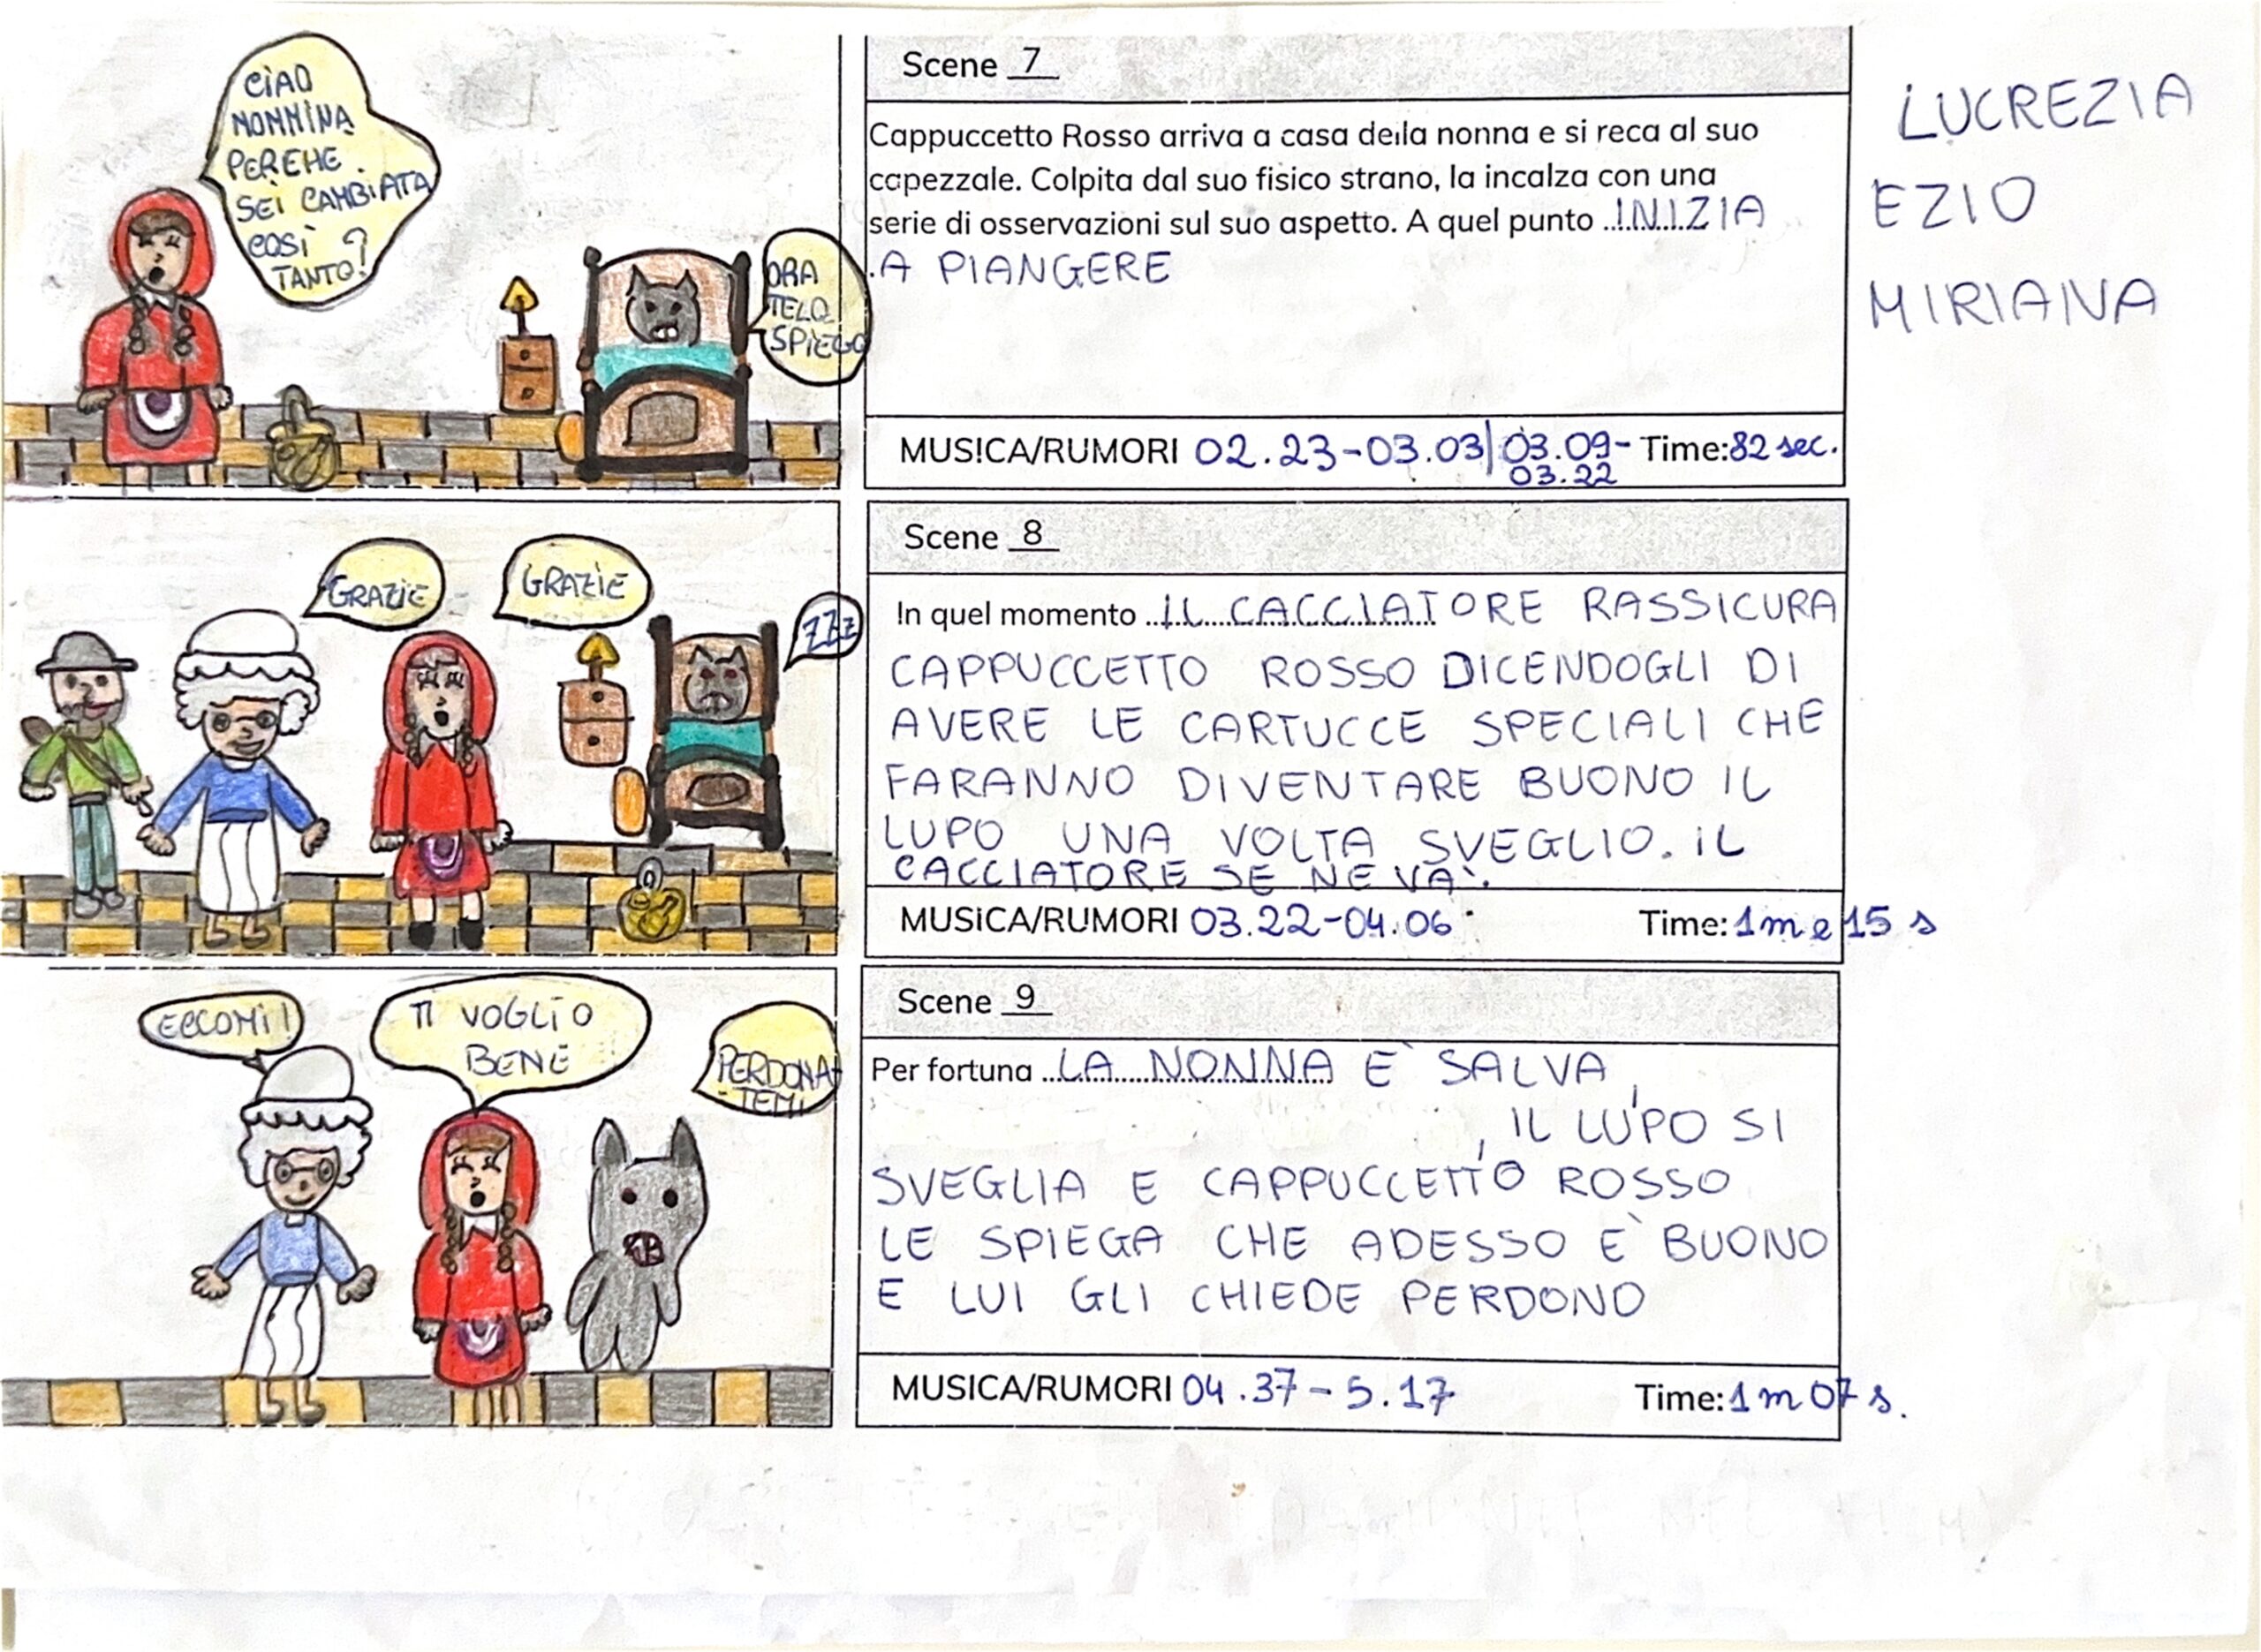 CIAO
NONNINA
PERCHE
SEI CAMBIATA
COSÌ
TANTO?
ORA
TELO
SPIEGO
Scene 7
Cappuccetto Rosso arriva a casa della nonna e si reca al suo
capezzale. Colpita dal suo fisico strano, la incalza con una
serie di osservazioni sul suo aspetto. A quel punto INIZIA
A PIANGERE
MUSICA/RUMORI 02.23-03.03| 03.09-03.22 Time: 82 sec.
LUCREZIA
EZIO
MIRIANA
GRAZIE
GRAZIE
ZZZ
Scene 8
In quel momento IL CACCIATORE RASSICURA
CAPPUCCETTO ROSSO DICENDOGLI DI
AVERE LE CARTUCCE SPECIALI CHE
FARANNO DIVENTARE BUONO IL
LUPO UNA VOLTA SVEGLIO. IL
CACCIATORE SE NE VA'.
MUSICA/RUMORI 03.22-04.06 Time: 1m e 15 s
ECCOMI!
TI VOGLIO
BENE
PERDONA-
TEMI
Scene 9
Per fortuna LA NONNA E' SALVA,
, IL LUPO SI
SVEGLIA E CAPPUCCETTO ROSSO
LE SPIEGA CHE ADESSO E' BUONO
E LUI GLI CHIEDE PERDONO
MUSICA/RUMORI 04.37-5.17 Time: 1m 07 s.